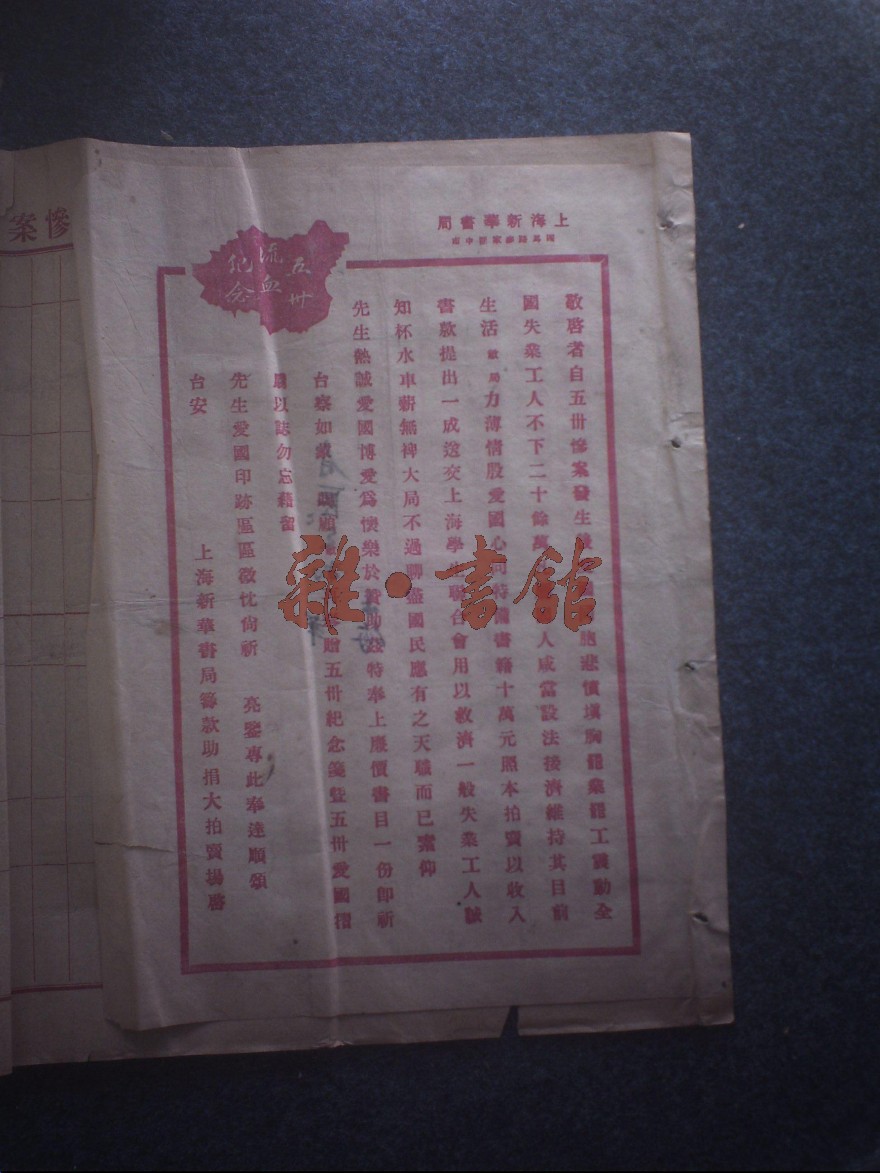 上海新華書局
五卅
流血
紀念
敬啓者自五卅慘案發生胞悲憤塡胸罷業罷工震動全
國失業工人不下二十餘萬人咸當設法後濟維持其目前
生活敝局力薄情殷愛國心同特書籍十萬元照本拍賣以收入
書款提出一成送交上海學聯合會用以救濟一般失業工人誠
知杯水車薪無裨大局不過聊盡國民應有之天職而已素仰
先生熱誠愛國博愛爲懷樂於助玆特奉上廉價書目一份即祈
台察如蒙賜顧贈五卅紀念箋曁五卅愛國摺
扇以誌勿忘藉留
先生愛國印跡區區微忱尙祈 亮鑒專此奉達順頌
台安 上海新華書局籌款助捐大拍賣場啓
慘案
雜·書館